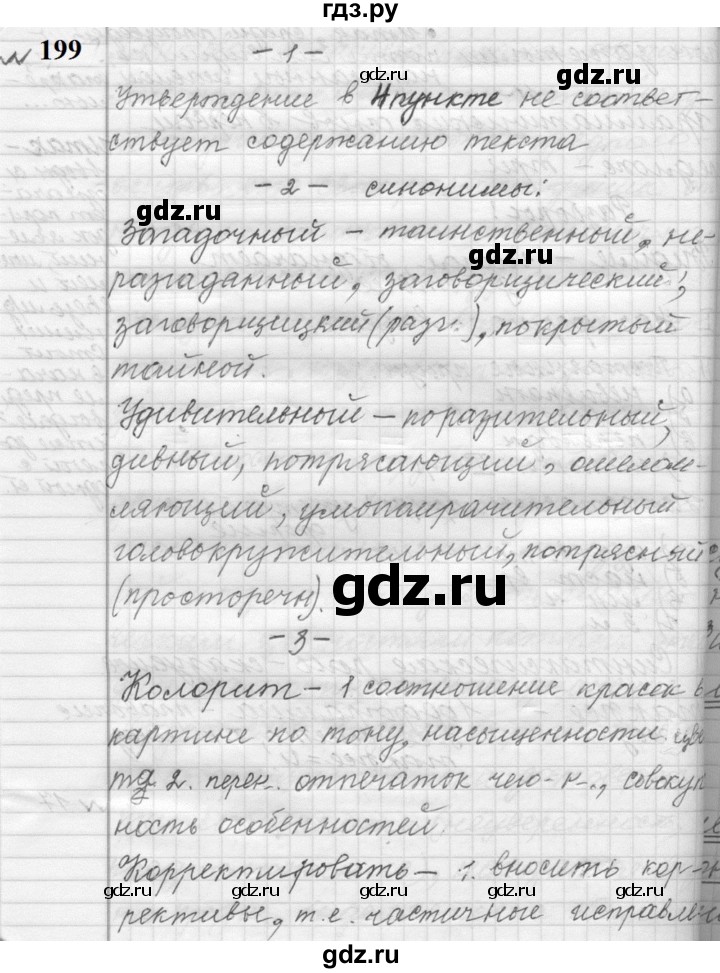 гдз.ру
№ 199
– 1 –
Утверждение в 4 пункте не соответ-
ствует содержанию текста
gdz.ru
gdz.ru
– 2 – синонимы:
gdz.ru
Загадочный – таинственный, не-
gdz.ru
разгаданный, заговорщический,
заговорщицкий (разг.), покрытый
тайной.
Удивительный – поразительный,
дивный, потрясающий, ошелом-
gdz.ru
ляющий, умопомрачительный
головокружительный, потрясный
gdz.ru
gdz.ru
(просторечн).
– 3 –
Колорит – 1 соотношение красок в
картине по тону, насыщенности цве
gdz.ru
та 2. перен. отпечаток чего-н., совокуп
ность особенностей.
Корректировать – 1. вносить кор-
gdz.ru
gdz.ru
gdz.ru
gdz.ru
рективы, т.е. частичные исправлен
gdz.ru